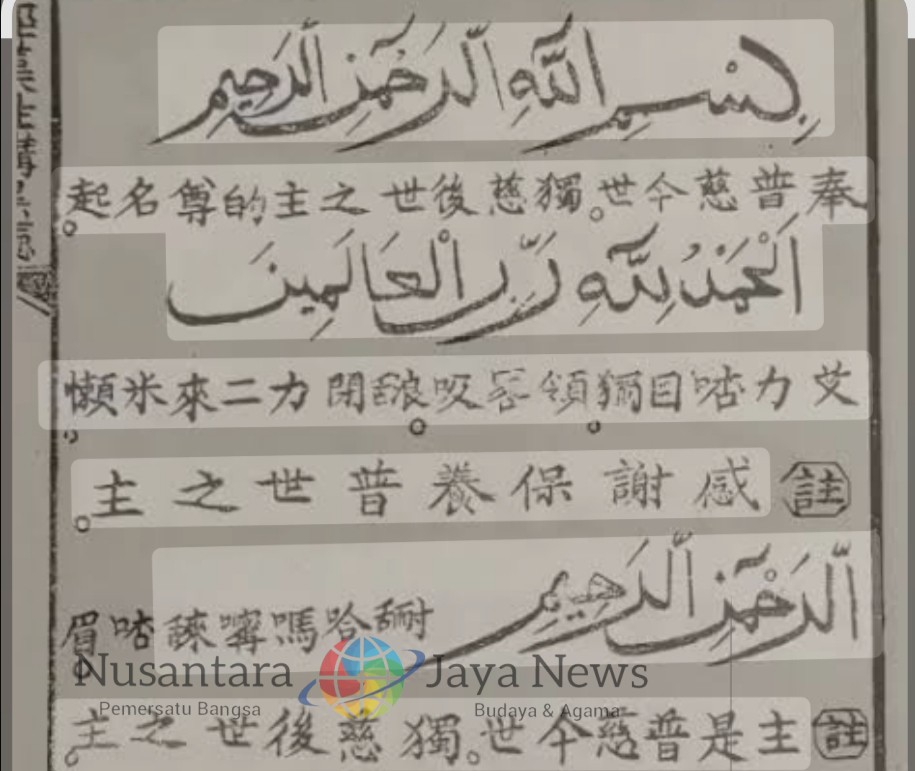 بِسْمِ اللَّهِ الرَّحْمَنِ الرَّحِيمِ
奉普慈今世。獨慈後世之主的尊名起。
اَلْحَمْدُ لِلَّهِ رَبِّ الْعَالَمِينَ
艾力咕目獮。領閉力二來米懶。
註 感謝保養普世之主。
اَلرَّحْمَنِ الرَّحِيمِ
哈嗎嚀咕眉
Nusantara Jaya News
Pemersatu Bangsa Budaya & Agama
註 主是普慈今世。獨慈後世之主。